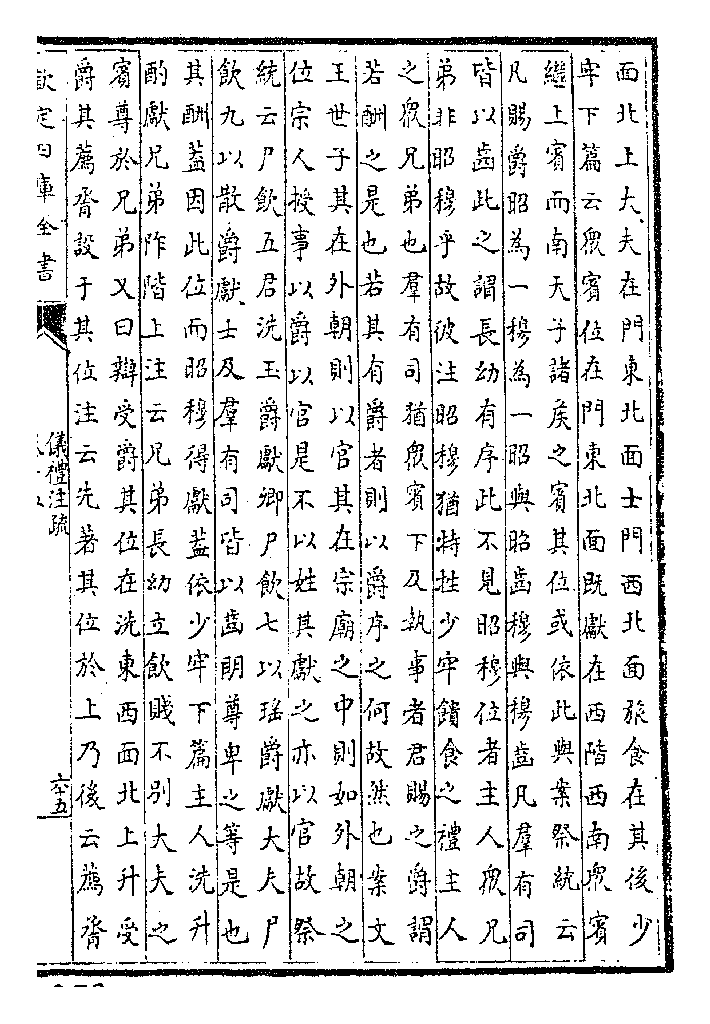 面北上大夫在門東北面士門西北面旅食在其後少
牢下篇云衆賓位在門東北面既獻在西階西南衆賓
繼上賓而南天子諸侯之賓其位或依此與案祭統云
凡賜爵昭為一穆為一昭與昭齒穆與穆齒凡羣有司
皆以齒此之謂長幼有序此不見昭穆位者主人衆兄
弟非昭穆乎故彼注昭穆猶特牲少牢饋食之禮主人
之衆兄弟也羣有司猶衆賓下及執事者君賜之爵謂
若酬之是也若其有爵者則以爵序之何故然也案文
王世子其在外朝則以官其在宗廟之中則如外朝之
位宗人授事以爵以官是不以姓其獻之亦以官故祭
統云尸飲五君洗玉爵獻卿尸飲七以瑤爵獻大夫尸
飲九以散爵獻士及羣有司皆以齒明尊卑之等是也
其酬蓋因此位而昭穆得獻蓋依少牢下篇主人洗升
酌獻兄弟阼階上注云兄弟長幼立飲賤不別大夫之
賓尊於兄弟又曰辯受爵其位在洗東西面北上升受
爵其薦脀設于其位注云先著其位於上乃後云薦脀
欽定四庫全書
儀禮注疏
六十五